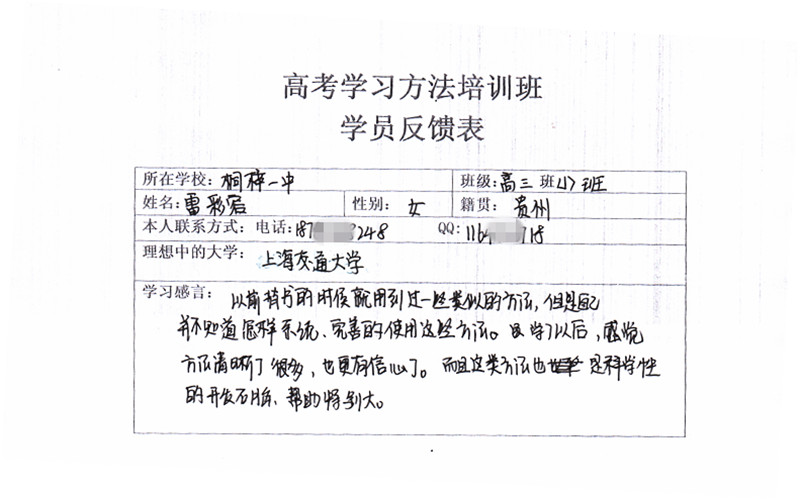 高考学习方法培训班
学员反馈表
所在学校：桐梓一中 班级：高三班(1)班
姓名：雷彩宏 性别：女 籍贯：贵州
本人联系方式：电话：187 3248 QQ：1164 718
理想中的大学：上海交通大学
学习感言：以前背书的时候就用到过一些类似的方法，但是自己
并不知道怎样系统、完善的使用这些方法。 学了以后，感觉
方法清晰了很多，也更有信心了。而且这类方法也 是科学性
的开发右脑，帮助特别大。